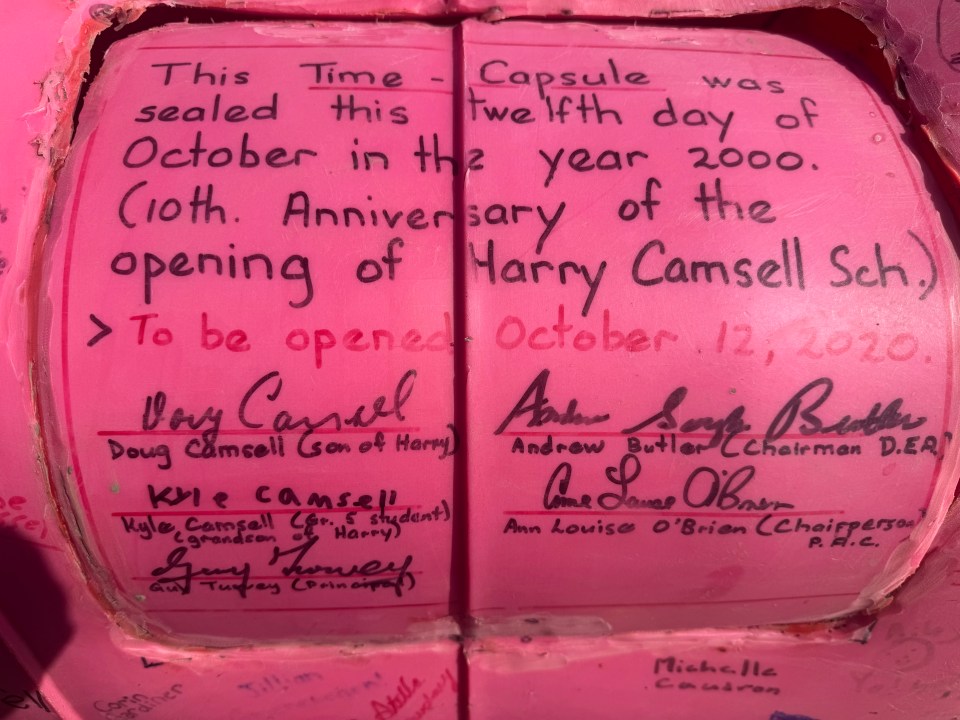 This Time - Capsule was
sealed this twelfth day of
October in the year 2000.
(10th. Anniversary of the
opening of Harry Camsell Sch.)
> To be opened October 12, 2020.
Doug Camsell
Doug Camsell (son of Harry)
Kyle Camsell
Kyle Camsell (Gr. 5 student)
(grandson of Harry)
Guy Turvey
Guy Turvey (Principal)
Andrew Butler
Andrew Butler (Chairman D.E.A.
Ann Louise O'Brien
Ann Louise O'Brien (Chairperson
P.A.C.
Michelle
Jillian